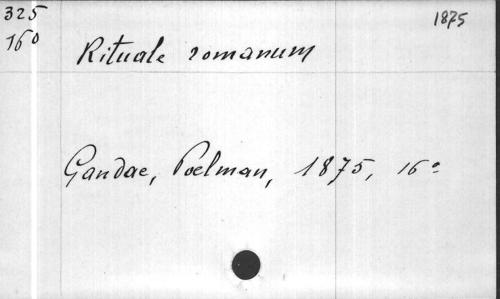 325
16º
1875
Rituale romanum
Gandae, Poelman, 1875, 16º